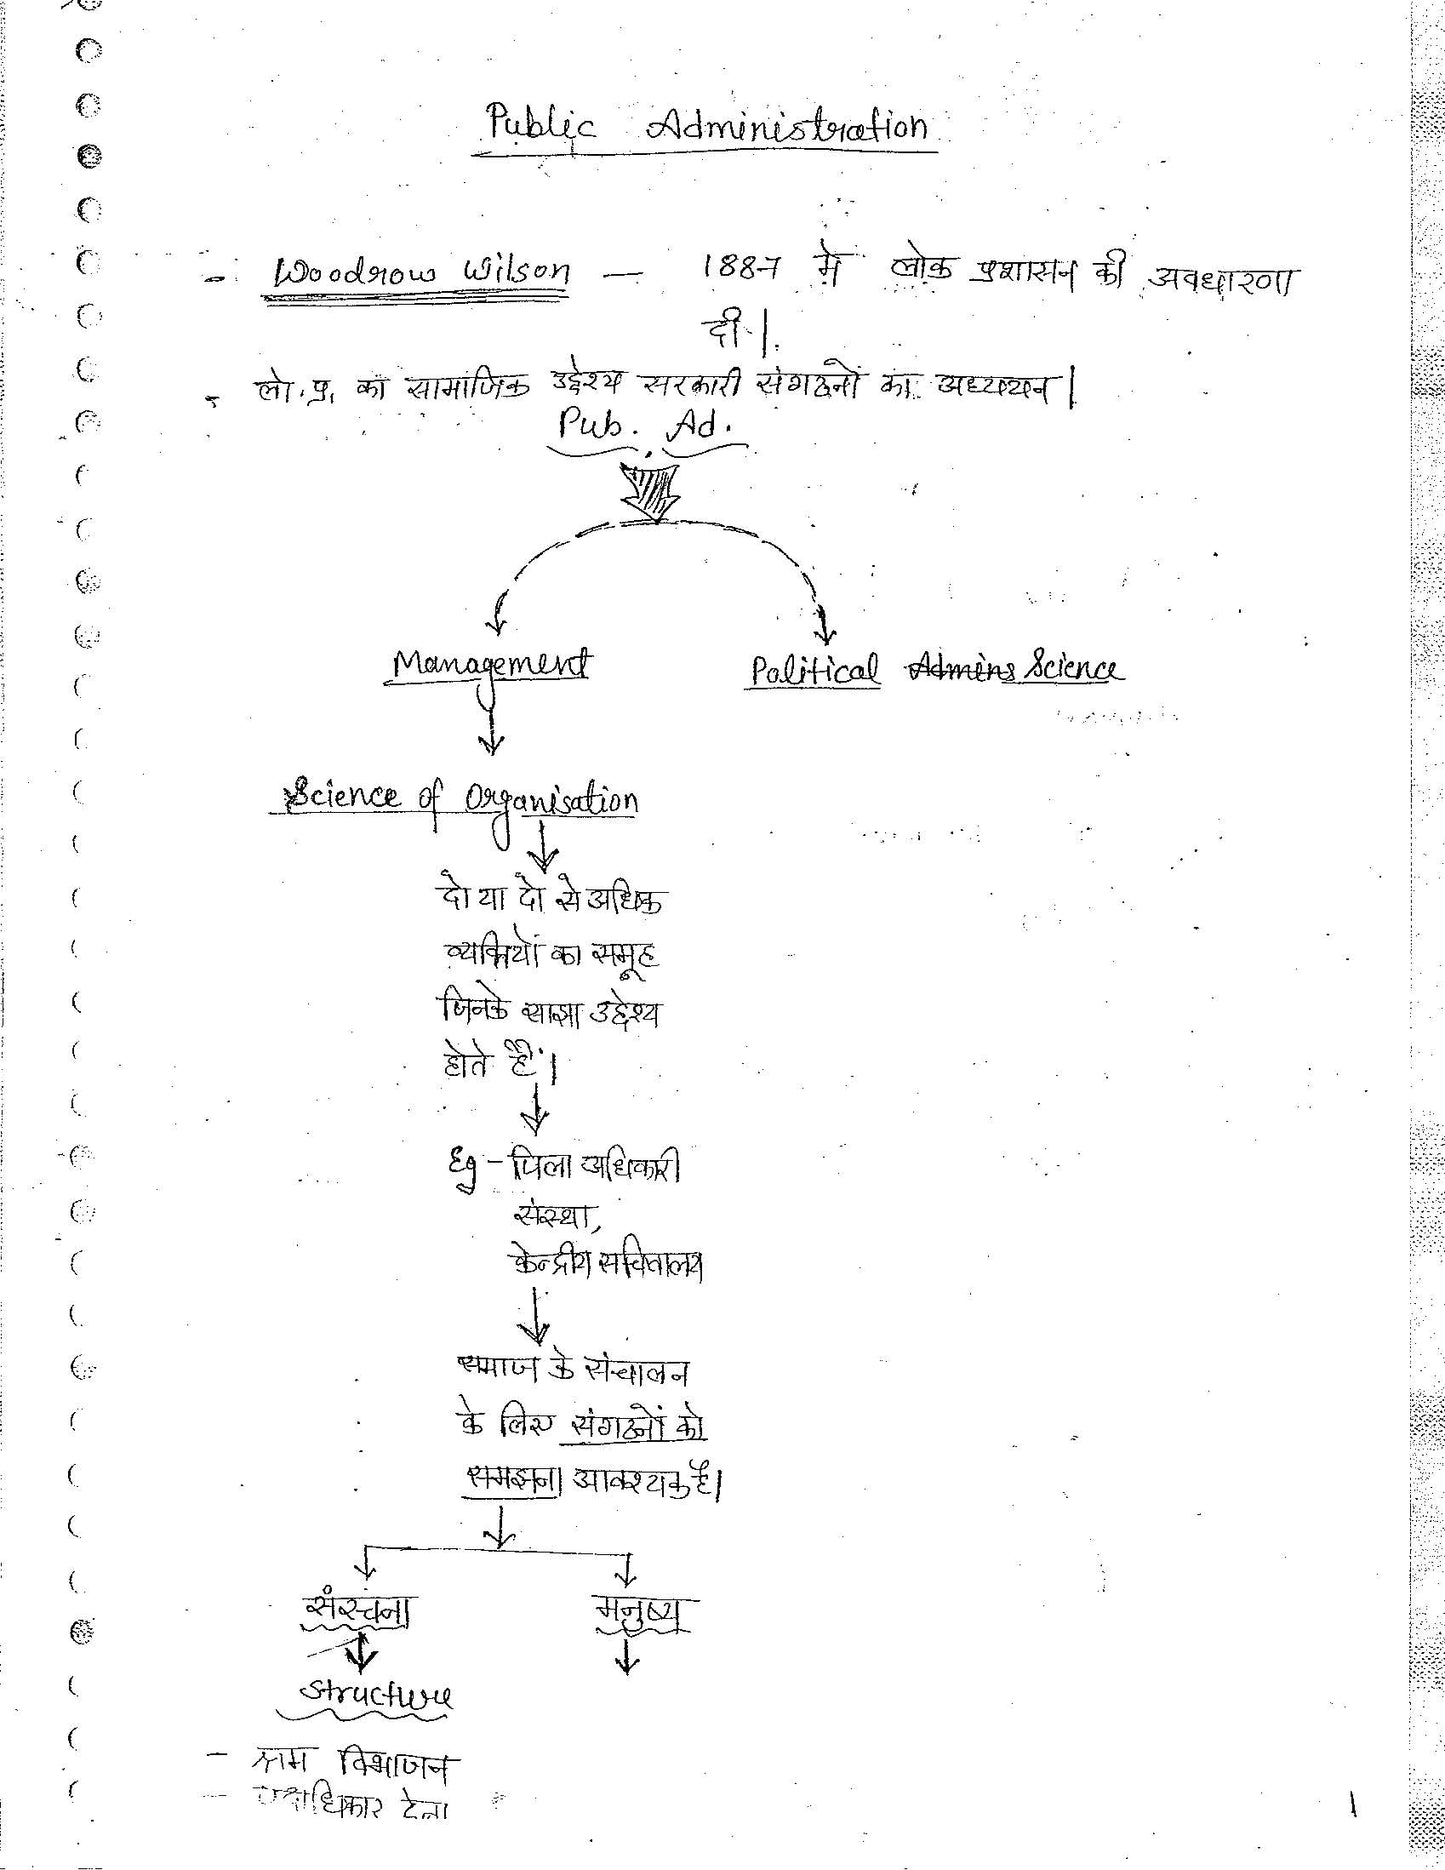 Public Administration
- Woodrow Wilson — 1887 में लोक प्रशासन की अवधारणा
दी।
- लो. प्र. का सामाजिक उद्देश्य सरकारी संगठनों का अध्ययन।
Pub. Ad.
Management Political Admins Science
Science of Organisation
दो या दो से अधिक
व्यक्तियों का समूह
जिनके साझा उद्देश्य
होते हैं।
Eg - जिला अधिकारी
संस्था,
केन्द्रीय सचिवालय
समाज के संचालन
के लिए संगठनों को
समझना आवश्यक है।
संरचना मनुष्य
Structure
- श्रम विभाजन
- देना
1